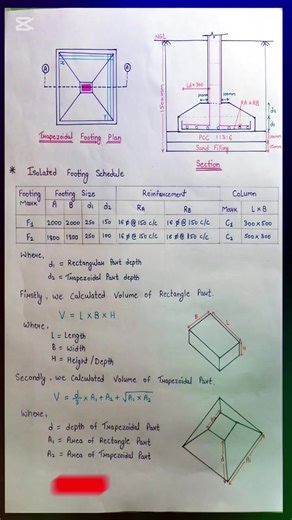 NGL
A
A
Ld = 300
1500mm
RA & RB
d2
d1
PCC 1:3:6
Sand Filling
Trapezoidal Footing Plan
Section
* Isolated Footing Schedule
Footing Mark | Footing Size | Reinforcement | Column
A | B | d1 | d2 | RA | RB | Mark | L x B
F1 | 2000 | 2000 | 250 | 150 | 16 ⌀ @ 150 c/c | 16 ⌀ @ 150 c/c | C1 | 300 x 500
F2 | 1800 | 1800 | 250 | 100 | 16 ⌀ @ 150 c/c | 16 ⌀ @ 150 c/c | C2 | 500 x 300
Where,
d1 = Rectangular Part depth
d2 = Trapezoidal Part depth
Firstly, we Calculated Volume of Rectangle Part.
V = L x B x H
Where,
L = Length
B = Width
H = Height / Depth
B
L
Secondly, we Calculated Volume of Trapezoidal Part.
V = d/3 x A1 + A2 + √A1 x A2
Where,
d = depth of Trapezoidal Part
A1 = Area of Rectangle Part
A2 = Area of Trapezoidal Part